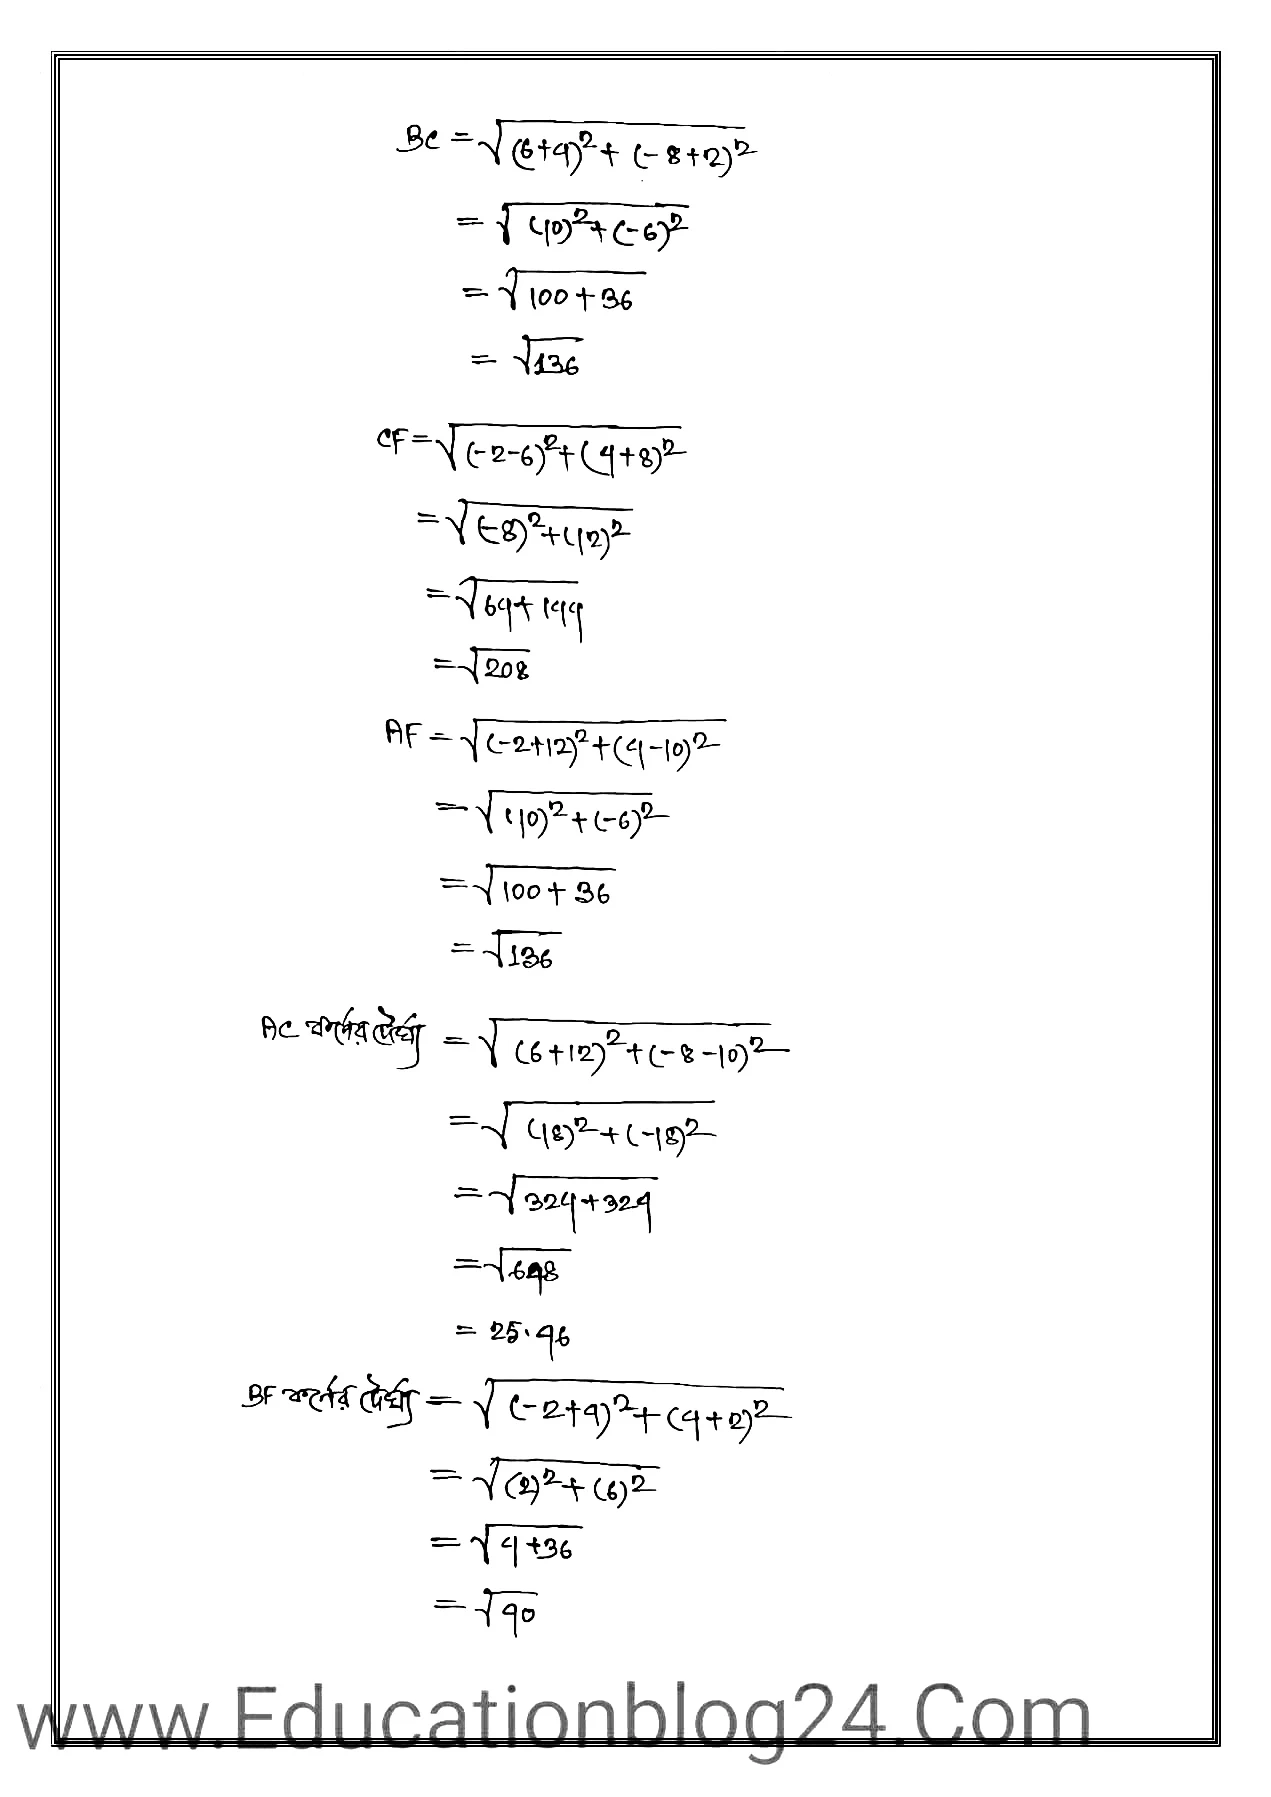 BC = √(6+4)² + (-8+2)²
= √(10)² + (-6)²
= √100 + 36
= √136
CF = √(-2-6)² + (4+8)²
= √(-8)² + (12)²
= √64 + 144
= √208
AF = √(-2+12)² + (4-10)²
= √(10)² + (-6)²
= √100 + 36
= √136
AC কর্ণের দৈর্ঘ্য = √(6+12)² + (-8-10)²
= √(18)² + (-18)²
= √324 + 324
= √648
= 25.46
BF কর্ণের দৈর্ঘ্য = √(-2+4)² + (4+2)²
= √(2)² + (6)²
= √4 + 36
= √40
www.Educationblog24.Com